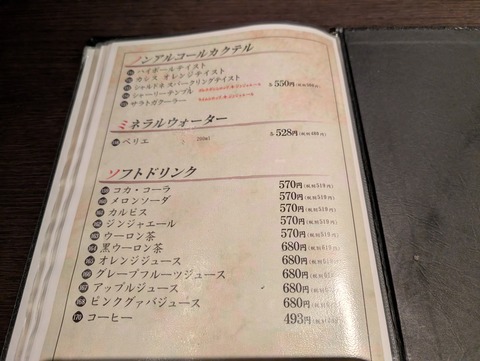 ノンアルコールカクテル
ハイボールテイスト
カシス オレンジテイスト
シャルドネ スパークリングテイスト
シャーリーテンプル
サラトガクーラー
各 550円
ミネラルウォーター
ペリエ
各 528円
ソフトドリンク
コカ・コーラ 570円(税別519円)
メロンソーダ 570円(税別519円)
カルピス 570円(税別519円)
ジンジャエール 570円(税別519円)
ウーロン茶 570円(税別519円)
黒ウーロン茶 680円
オレンジジュース 680円
グレープフルーツジュース 680円
アップルジュース 680円
168 ピンクグァバジュース 680円
170 コーヒー 493円